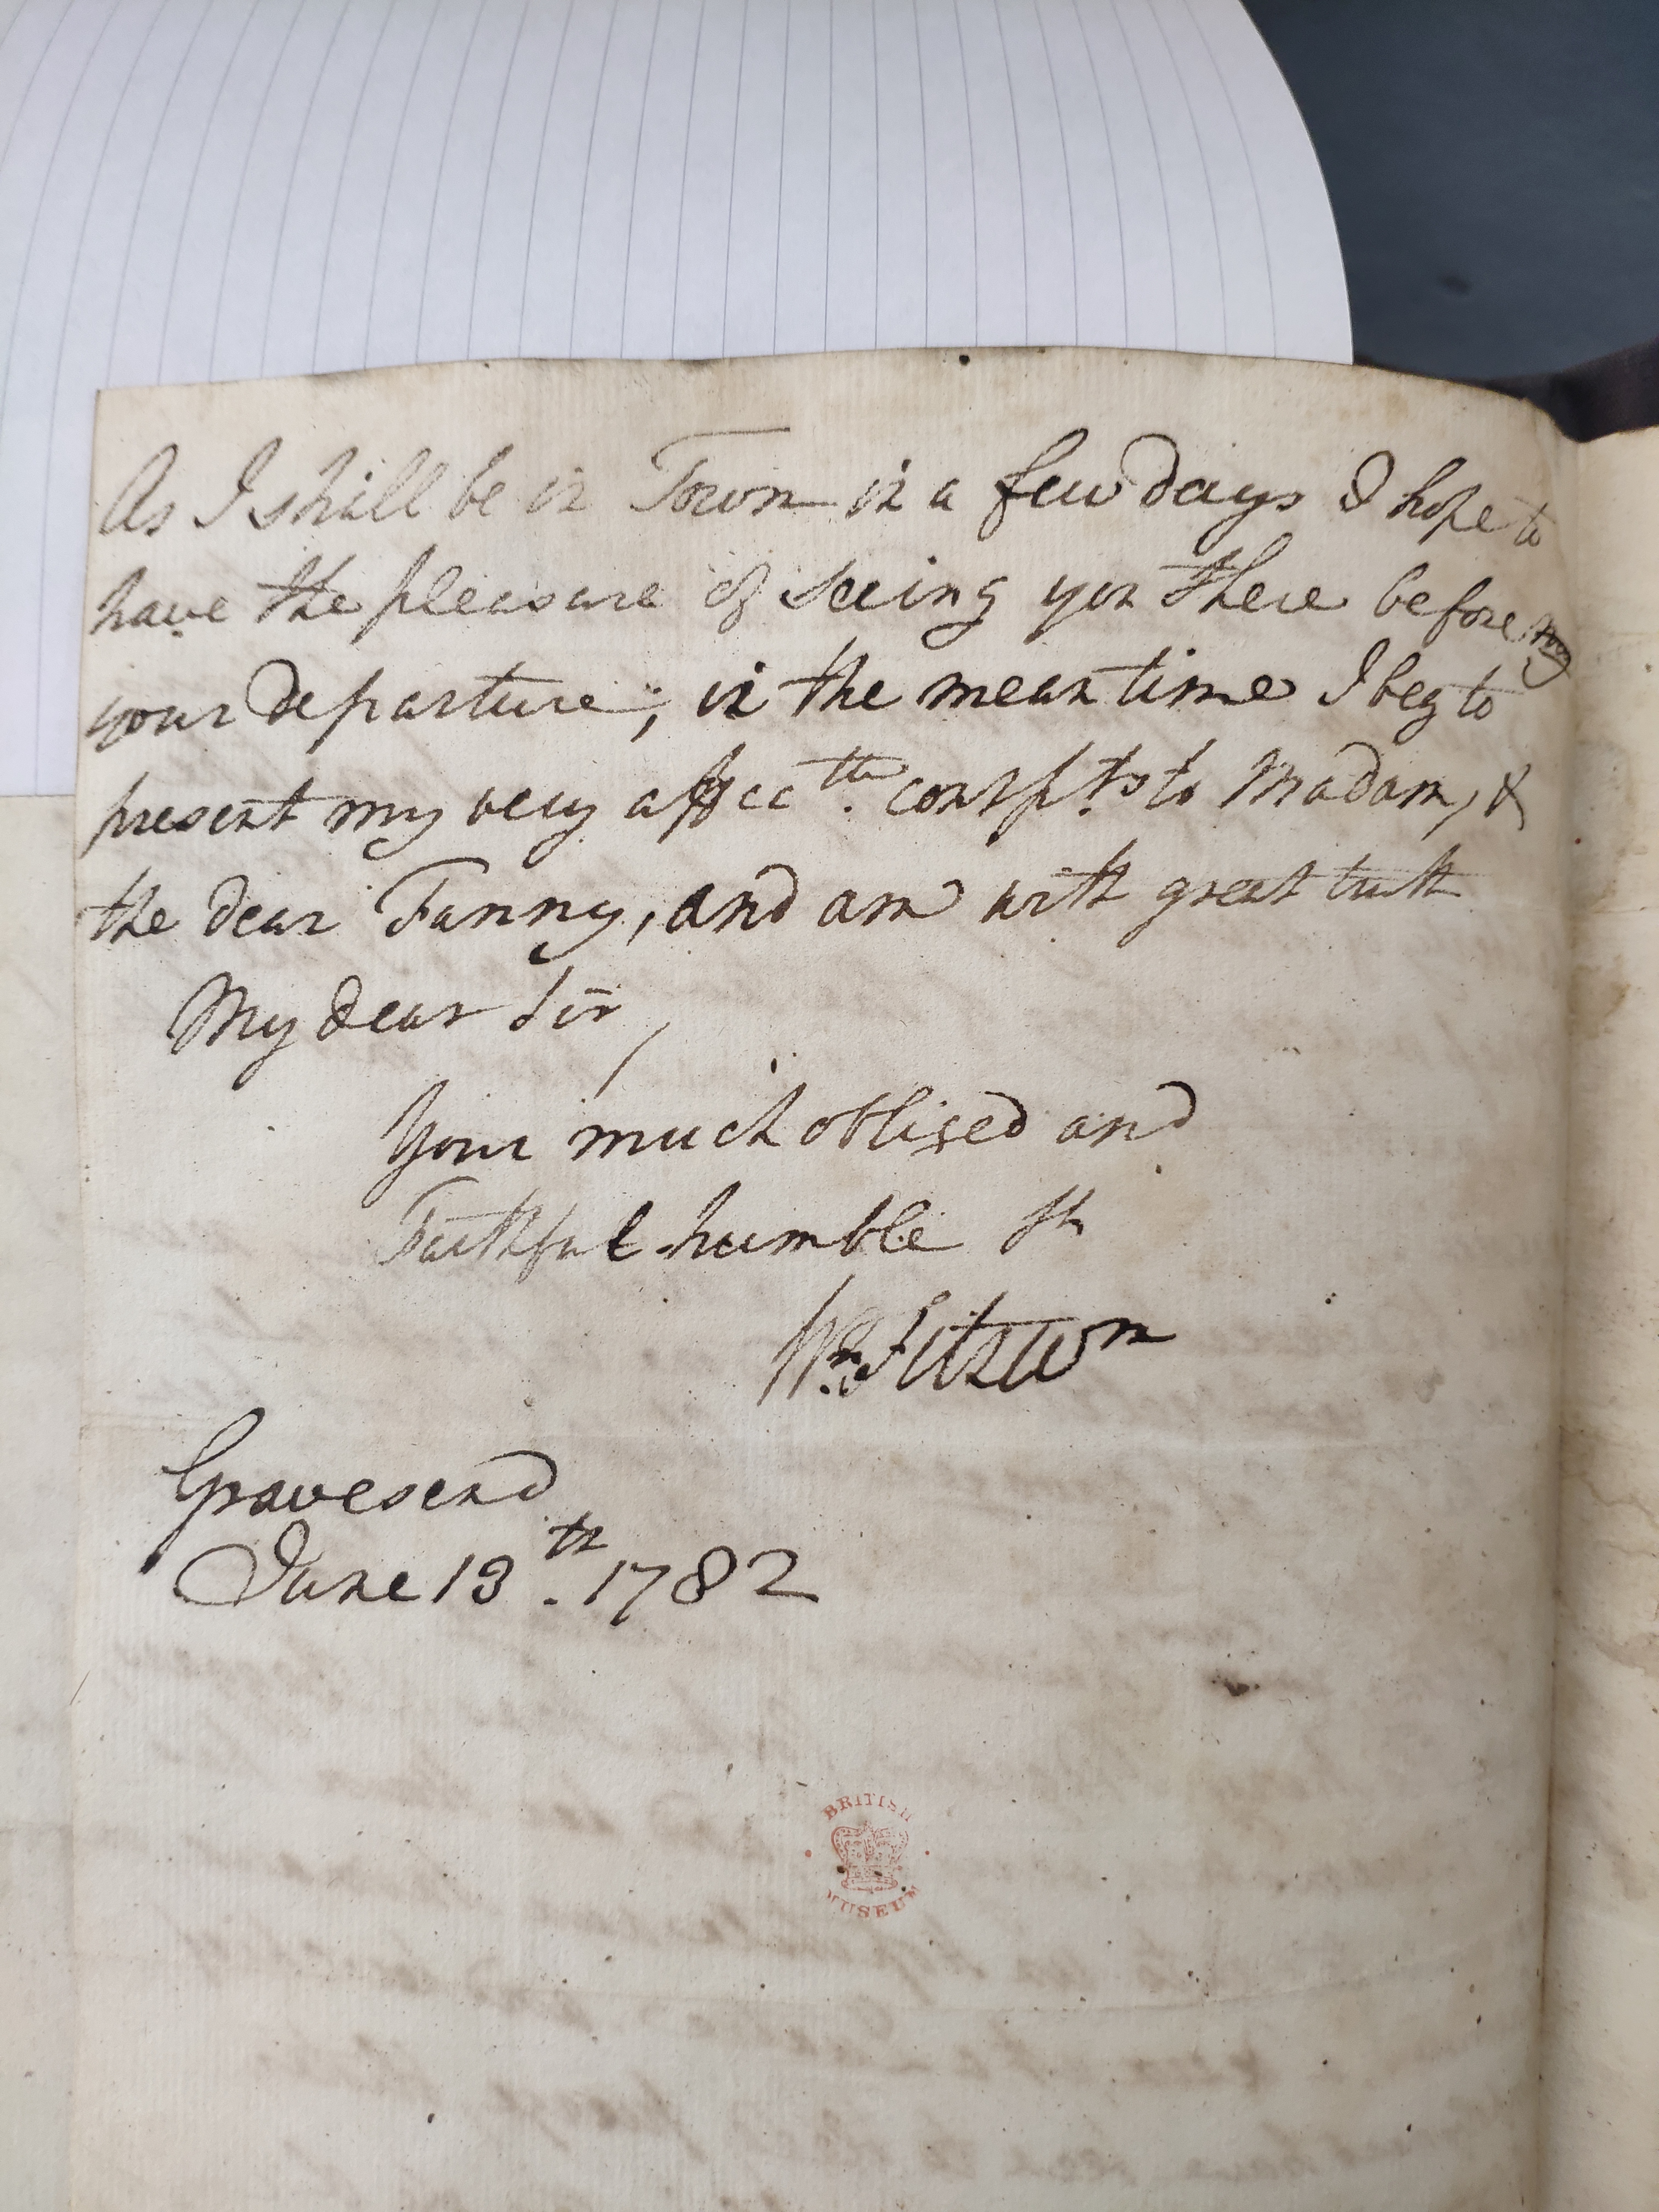 As I shall be in Town in a few days I hope to
have the pleasure of seeing you there before my
your departure; in the mean time I beg to
present my very affec<sup>te</sup>. Comp<sup>ts</sup> to Madam, &
the dear Fanny, and am with great truth
My dear Sir,
Your much obliged and
Faithful humble S<sup>t</sup>
W<sup>m</sup> Fitzw<sup>m</sup>
Gravesend
June 13<sup>th</sup>. 1782
BRITISH
MUSEUM